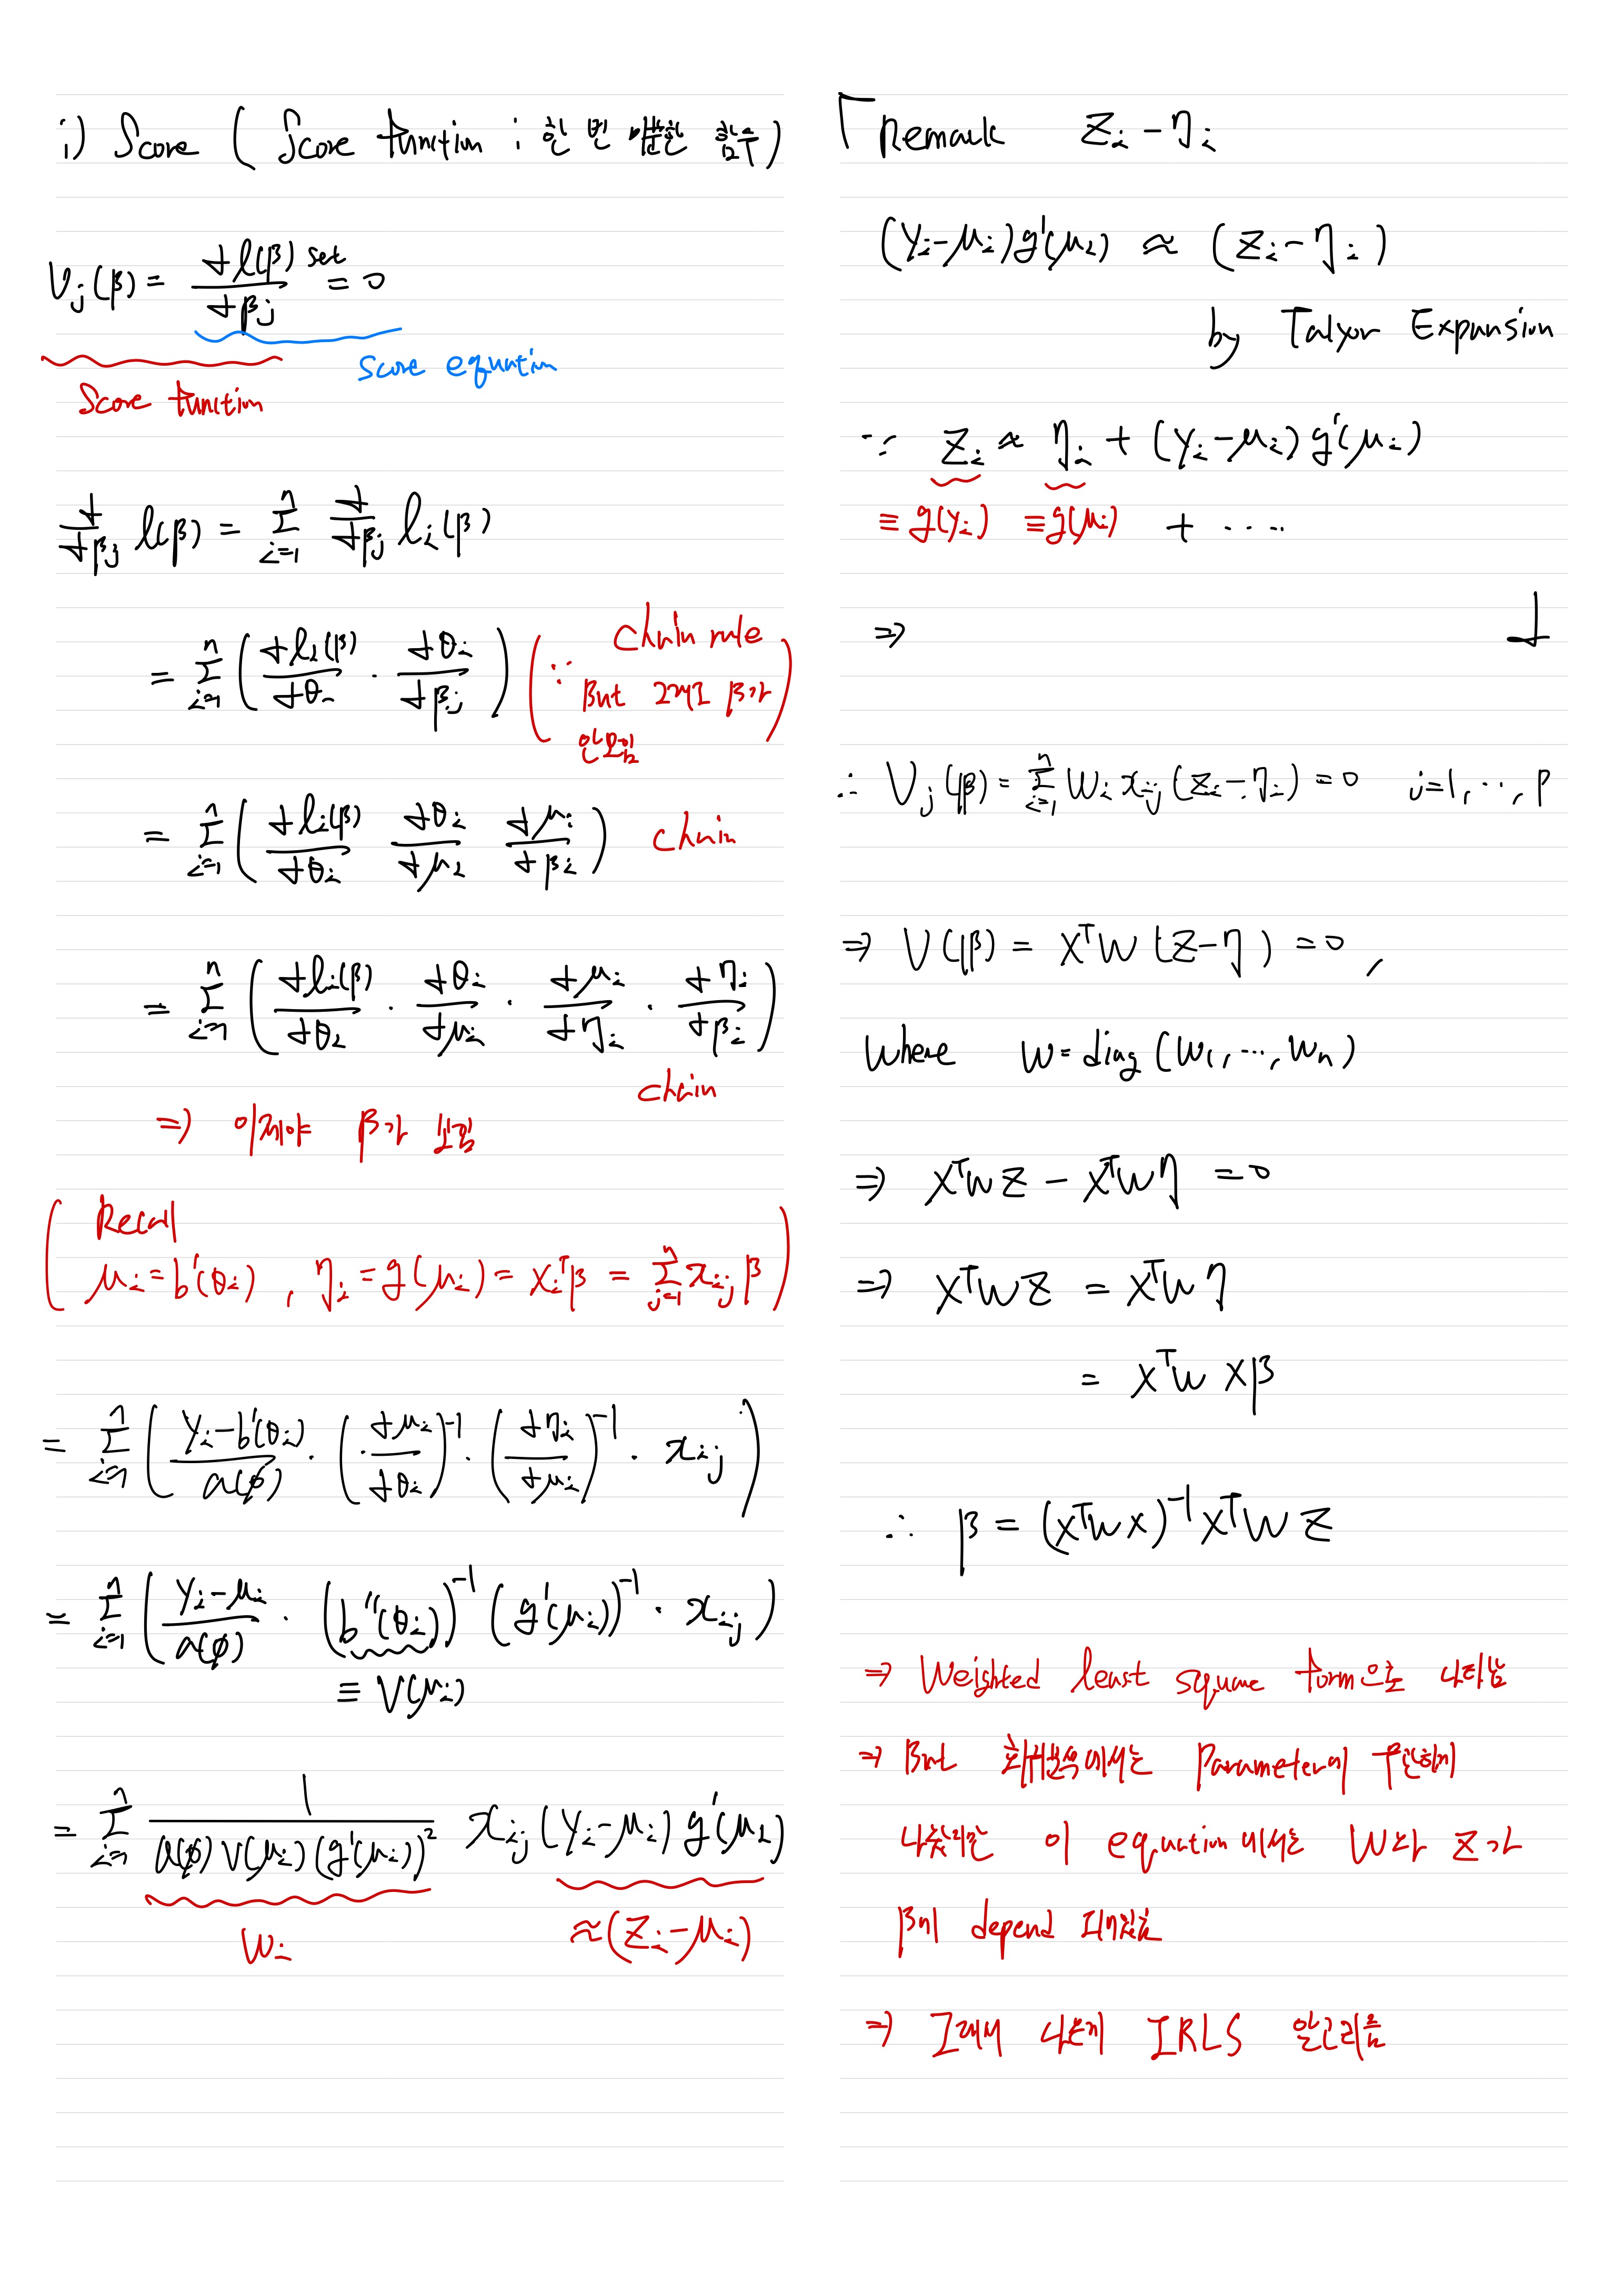 i) Score ( Score function : 한 번 미분한 함수 )
U_j(β) = ∂l(β)/∂β_j set = 0
score equation
Score function
∂/∂β_j l(β) = Σ_{i=1}^n ∂/∂β_j l_i(β)
= Σ_{i=1}^n ( ∂l_i(β)/∂θ_i · ∂θ_i/∂β_j ) ( ∵ chain rule
But 그래도 β가
안보임 )
= Σ_{i=1}^n ( ∂l_i(β)/∂θ_i ∂θ_i/∂μ_i ∂μ_i/∂β_i ) chain
= Σ_{i=1}^n ( ∂l_i(β)/∂θ_i · ∂θ_i/∂μ_i · ∂μ_i/∂η_i · ∂η_i/∂β_i )
chain
⇒ 이제야 β가 보임
( Recall
μ_i = b'(θ_i) , η_i = g(μ_i) = x_i^T β = Σ_{j=1}^n x_ij β )
= Σ_{i=1}^n ( (y_i − b'(θ_i))/a(φ) · (∂μ_i/∂θ_i)^{-1} · (∂η_i/∂μ_i)^{-1} · x_ij )
= Σ_{i=1}^n ( (y_i − μ_i)/a(φ) · (b''(θ_i))^{-1} (g'(μ_i))^{-1} · x_ij )
≡ V(μ_i)
= Σ_{i=1}^n 1/(a(φ) V(μ_i) (g'(μ_i))^2) x_ij (y_i − μ_i) g'(μ_i)
W_i ≈ (Z_i − μ_i)
Remark Z_i − η_i
(y_i − μ_i) g'(μ_i) ≈ (Z_i − η_i)
by Talyor Expansion
∵ Z_i ≈ η_i + (y_i − μ_i) g'(μ_i)
≡ g(y_i) ≡ g(μ_i) + ⋯
⇒
∴ U_j(β) = Σ_{i=1}^n W_i x_ij (Z_i − η_i) = 0 j=1, ⋯, p
⇒ U(β) = X^T W (Z − η) = 0 ,
where W = diag (W_1, ⋯, W_n)
⇒ X^T W Z − X^T W η = 0
⇒ X^T W Z = X^T W η
= X^T W X β
∴ β = (X^T W X)^{-1} X^T W Z
⇒ Weighted least square form으로 나타남
⇒ But 회귀분석에서는 parameter에 무관하게
나왔지만 이 equation에서는 W와 Z가
β에 depend 되어있음
⇒ 그래서 나온게 IRLS 알고리즘